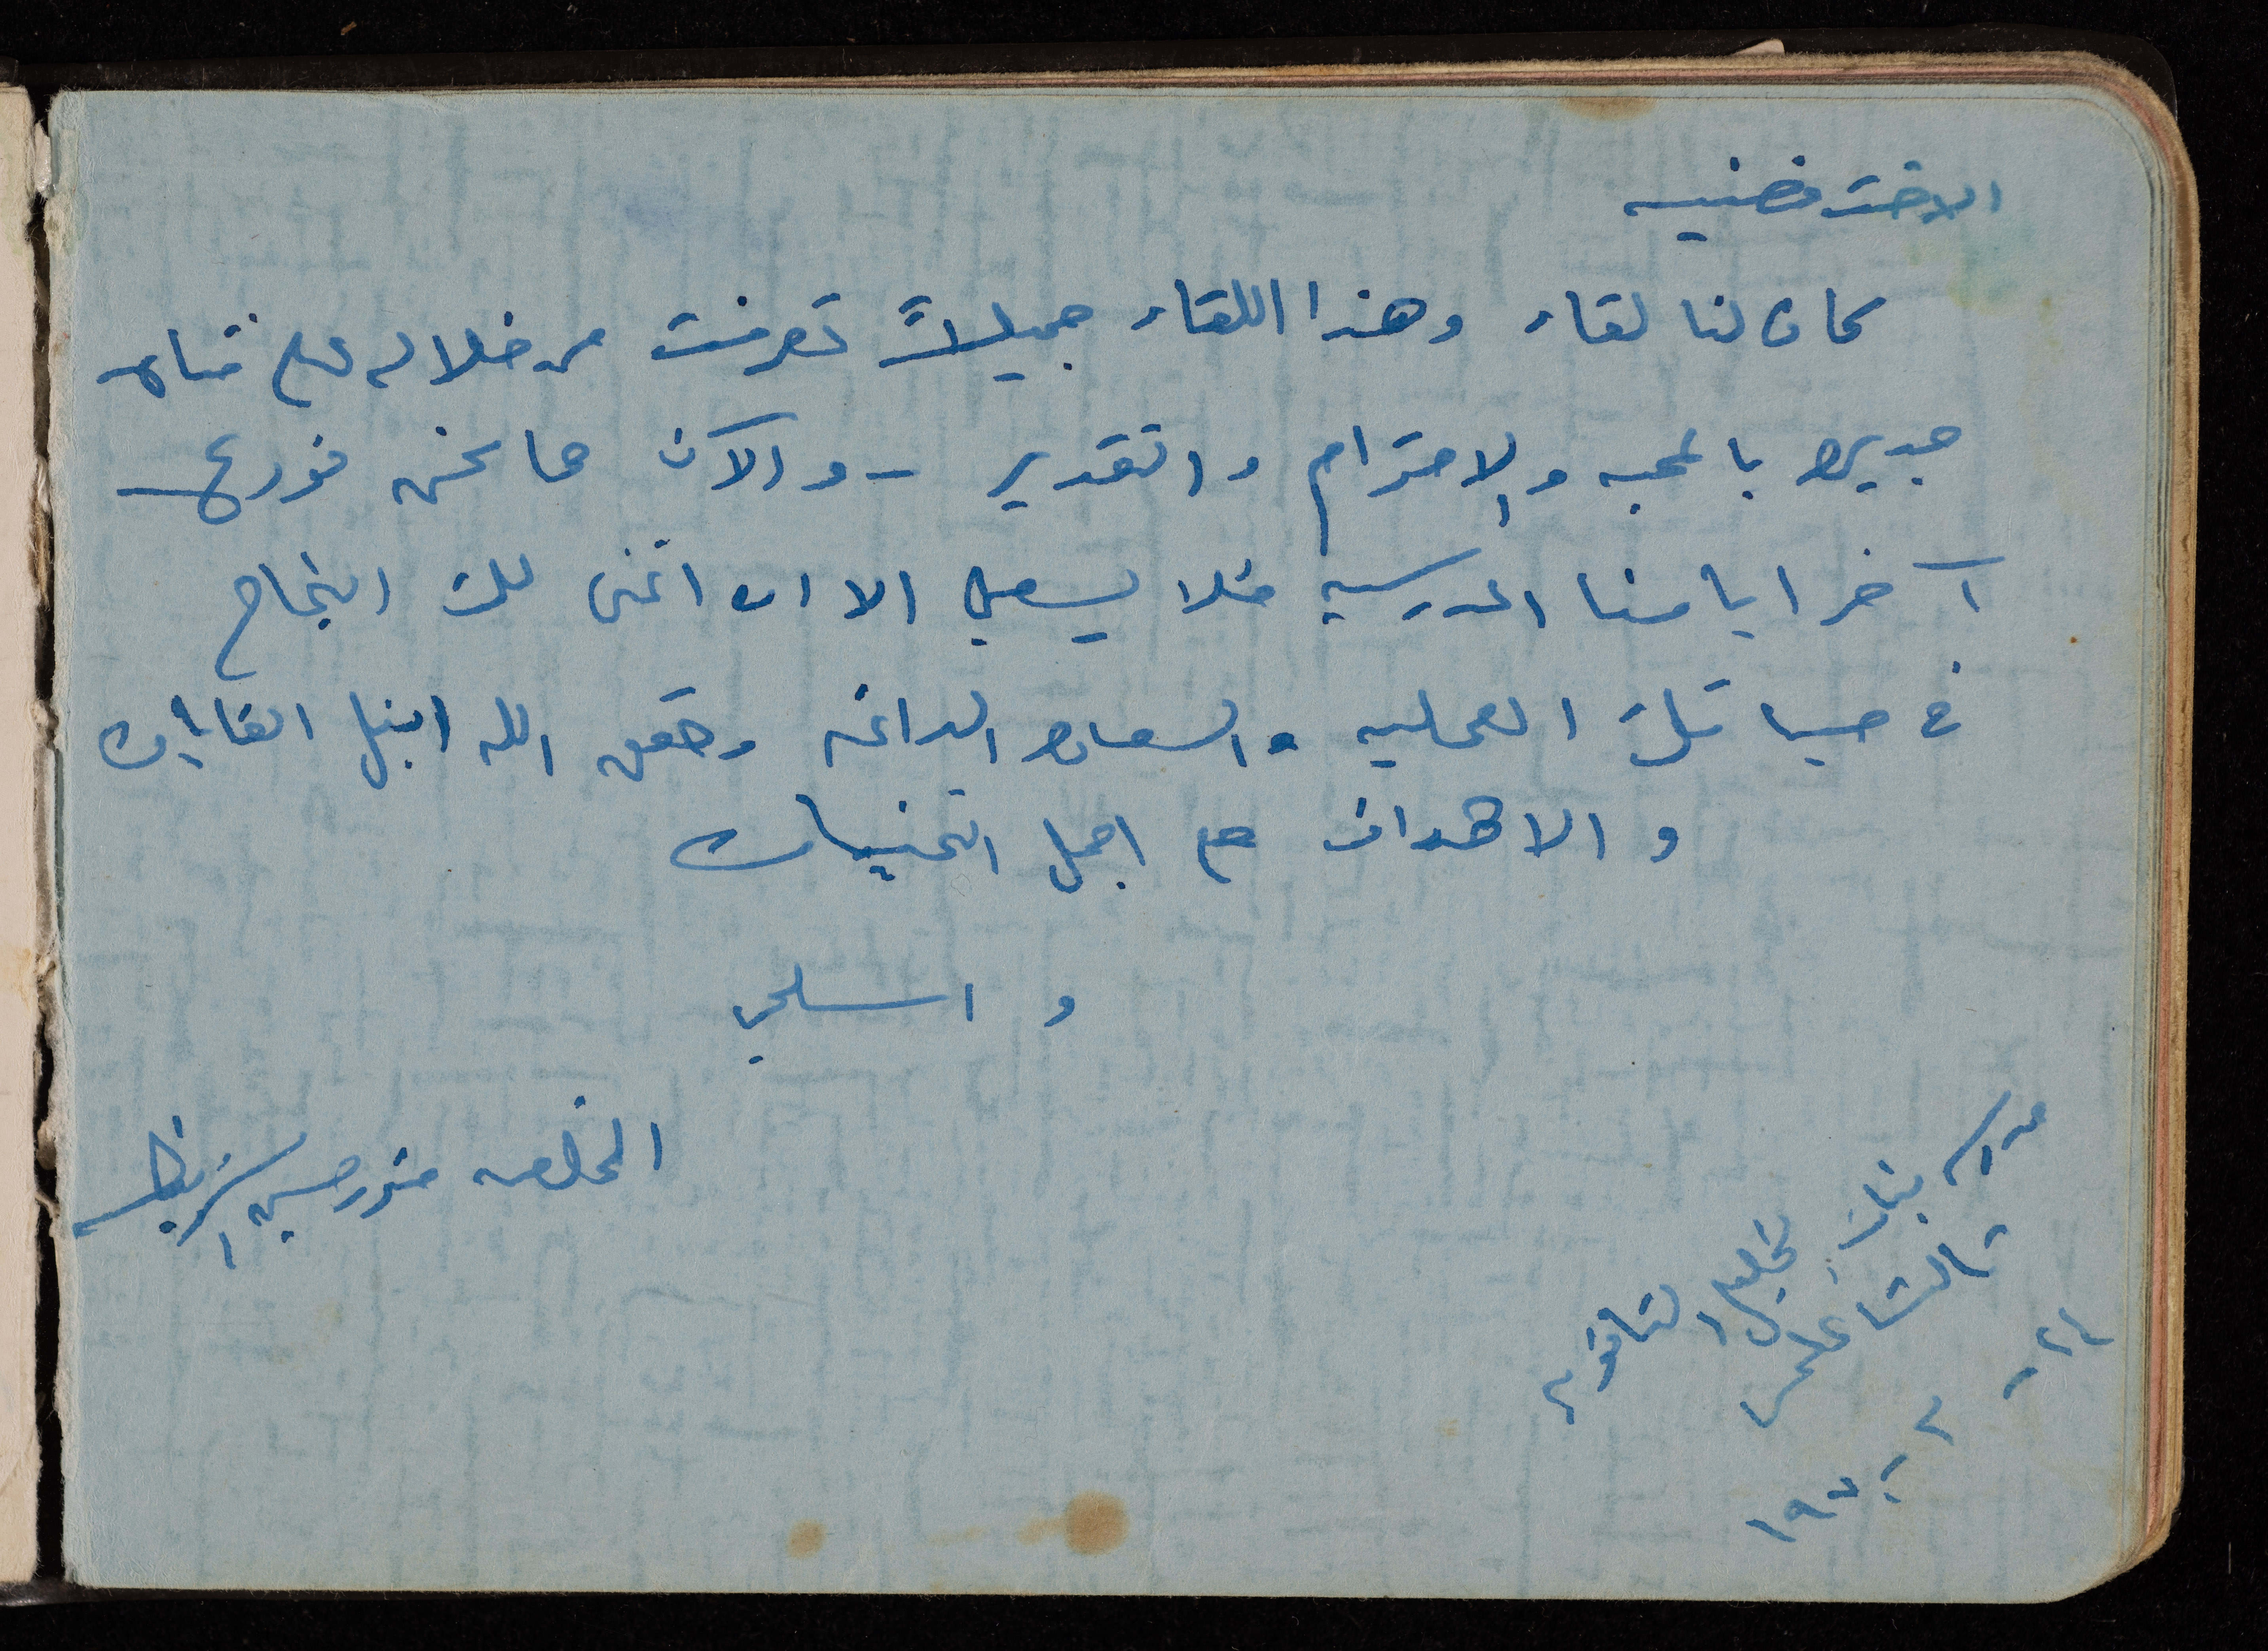 الاخت فضيه
كان لنا لقاء وهذا اللقاء جميلاً تعرفت من خلاله على فتاه
جديره بالمحبه والاحترام والتقدير - والآن ها نحن نودع
آخر ايامنا المدرسيه فلا يسعني الا ان اتمنى لك النجاح
في حياتك العمليه والسعاده الدائمه وحقق الله انبل الغايات
والاهداف مع اجمل التمنيات
واسلمي
المخلصه
مدرسه بنات الخليل الثانويه
ثالث علمي